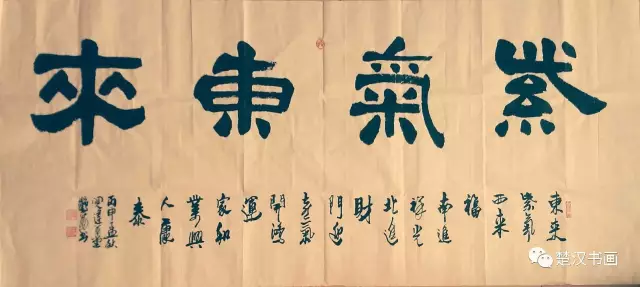 紫氣東來
東来
紫氣
西来
福
南進
祥光
北進
財
門迎
喜氣
開鴻
運
家和
人康
泰
丙申孟秋
楚汉书画